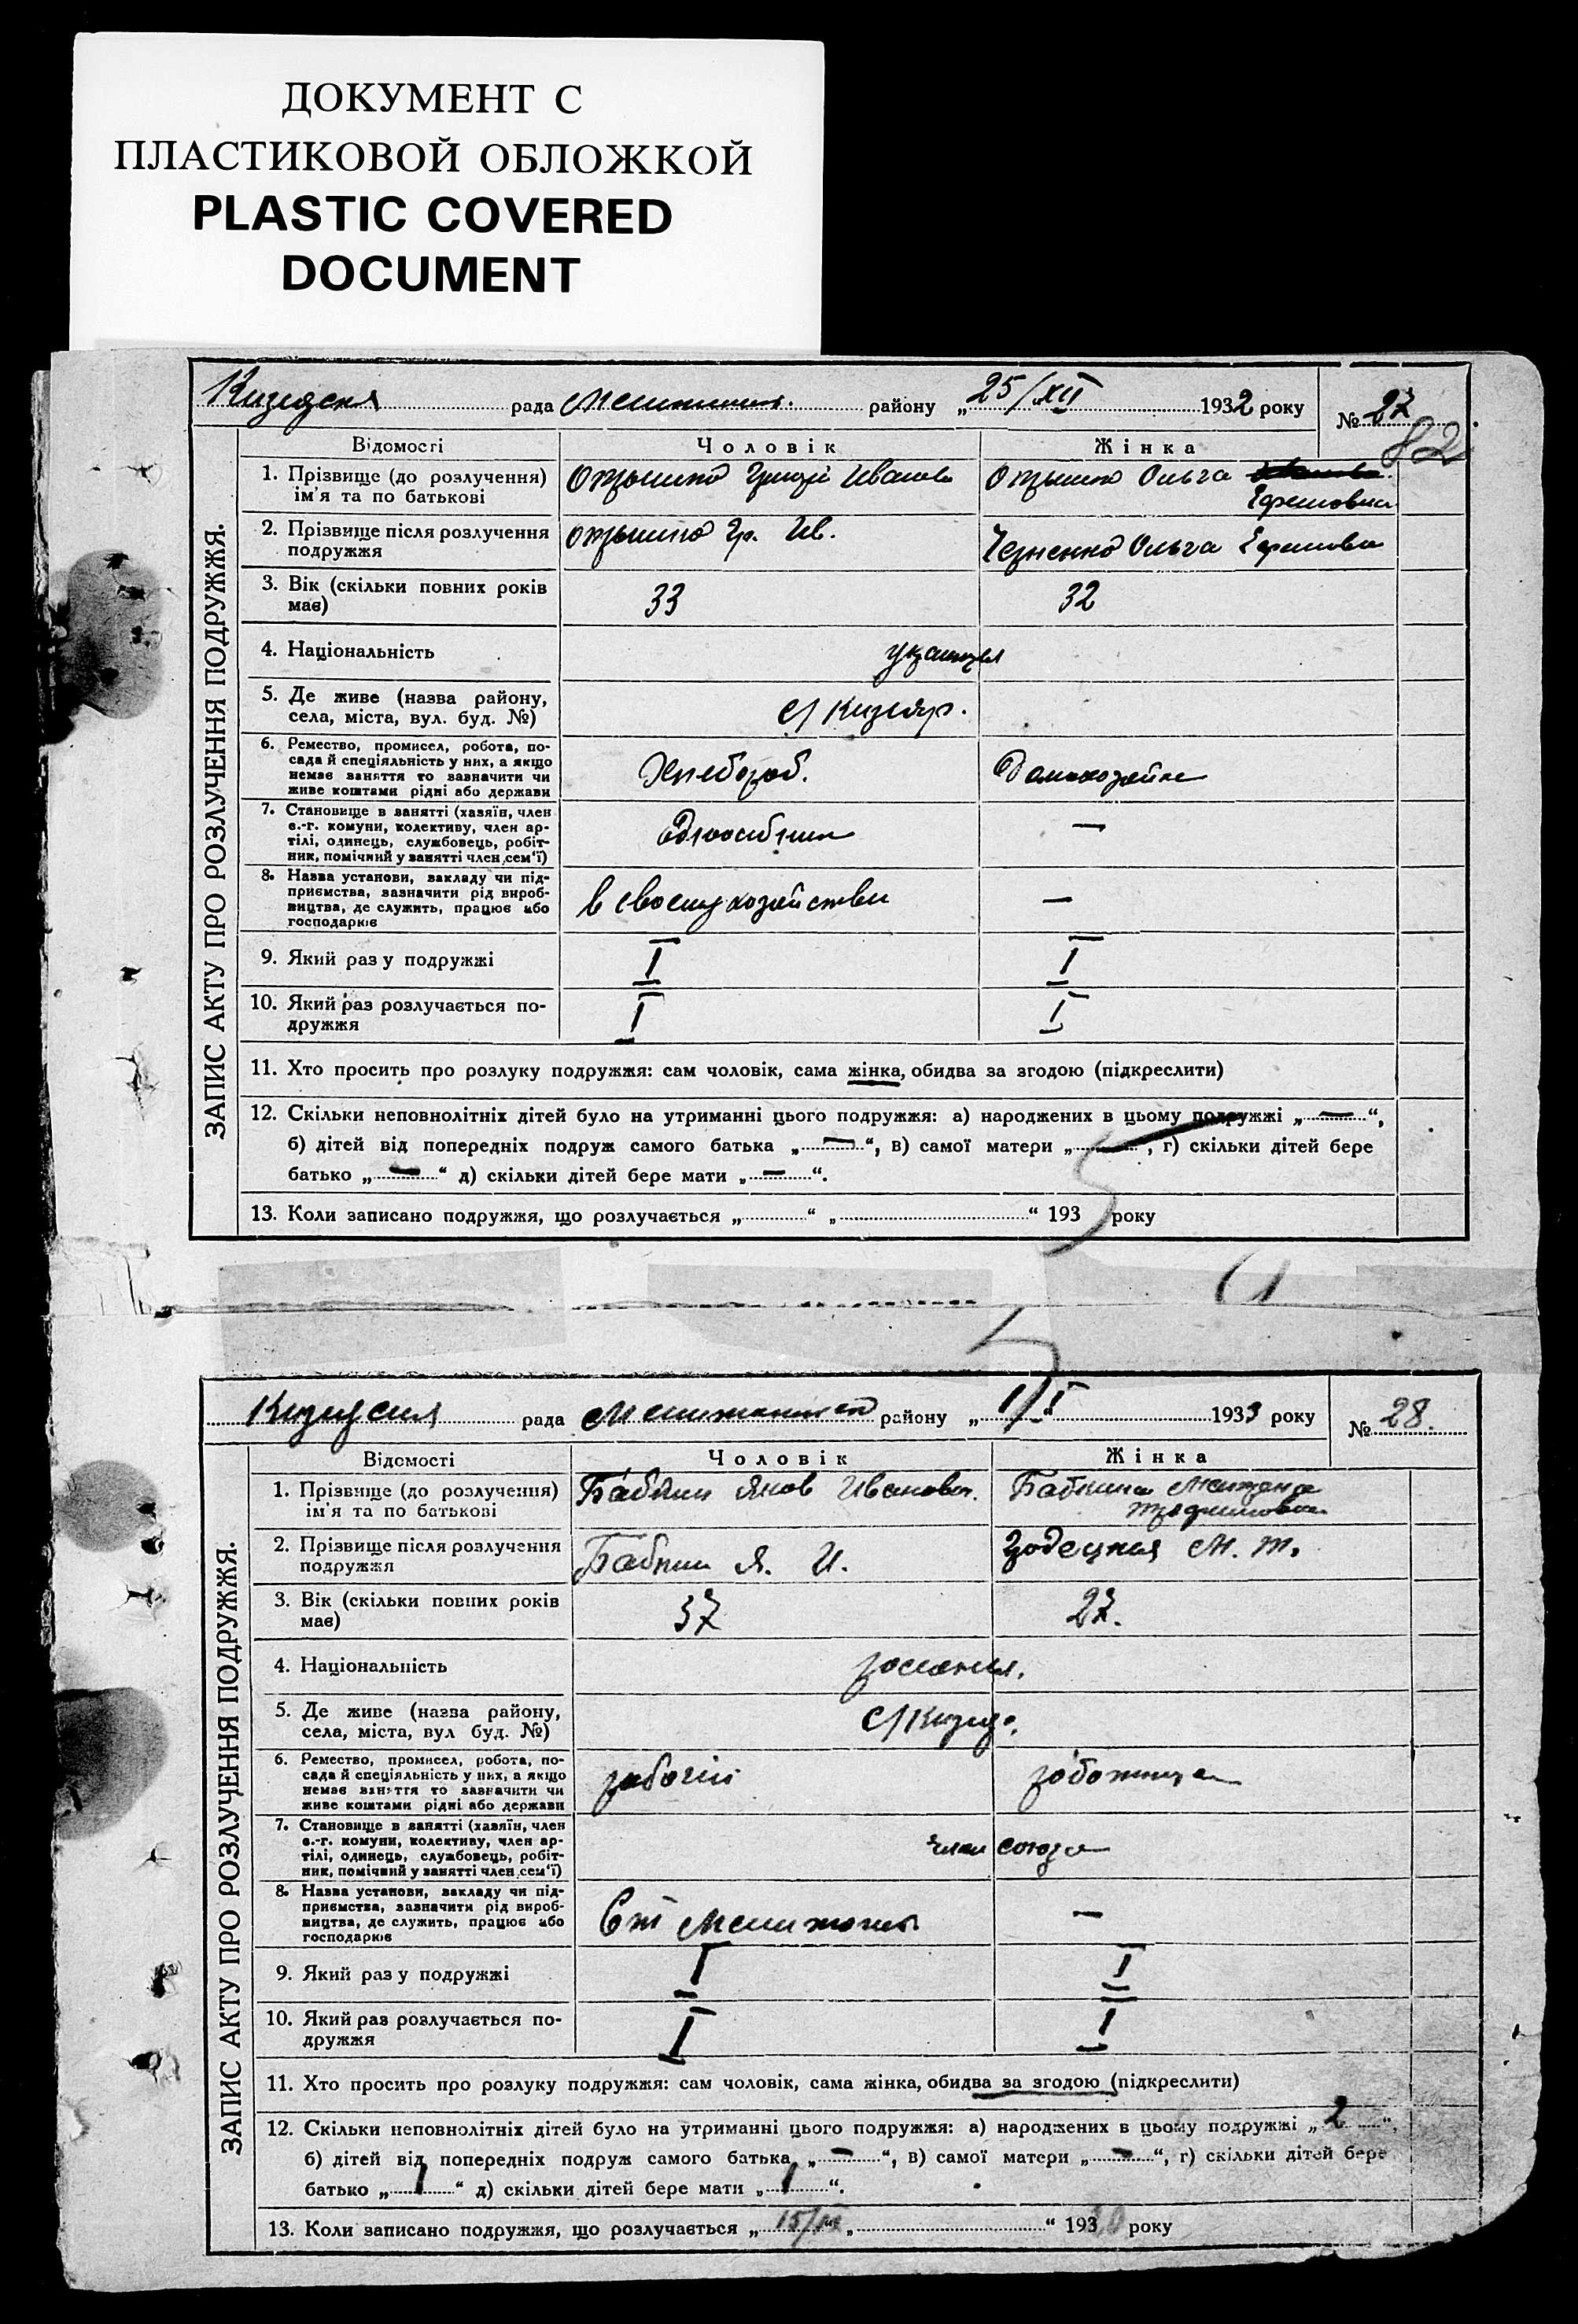 ДОКУМЕНТ С
ПЛАСТИКОВОЙ ОБЛОЖКОЙ
PLASTIC COVERED
DOCUMENT
рада району „25/XII 1932 року № 27
82
ЗАПИС АКТУ ПРО РОЗЛУЧЕННЯ ПОДРУЖЖЯ.
Відомості Чоловік Жінка
1. Прізвище (до розлучення) ім'я та по батькові
Ольга
Ефимовна
2. Прізвище після розлучення подружжя
Гр. Ив. Черненко Ольга Ефимовна
3. Вік (скільки повних років має) 33 32
4. Національність
5. Де живе (назва району, села, міста, вул. буд. №) с/
6. Ремество, промисел, робота, посада й спеціяльність у них, а якщо немає заняття то зазначити чи живе коштами рідні або держави
Хлебороб. Домохозяйка
7. Становище в занятті (хазяїн, член с.-г. комуни, колективу, член артілі, одинець, службовець, робітник, помічний у занятті член сем'ї)
—
8. Назва установи, закладу чи підприємства, зазначити рід виробництва, де служить, працює або господарює
в своему хозяйстви —
9. Який раз у подружжі I I
10. Який раз розлучається подружжя I I
11. Хто просить про розлуку подружжя: сам чоловік, сама жінка, обидва за згодою (підкреслити)
12. Скільки неповнолітніх дітей було на утриманні цього подружжя: а) народжених в цьому подружжі „—“,
б) дітей від попередніх подруж самого батька „—“, в) самої матери „—“, г) скільки дітей бере
батько „—“ д) скільки дітей бере мати „—“.
13. Коли записано подружжя, що розлучається „ “ „ “ 193 року
рада району „1/I 1933 року № 28.
ЗАПИС АКТУ ПРО РОЗЛУЧЕННЯ ПОДРУЖЖЯ.
Відомості Чоловік Жінка
1. Прізвище (до розлучення) ім'я та по батькові
Яков Иванович
2. Прізвище після розлучення подружжя
Я. И. М. Т.
3. Вік (скільки повних років має) 37 27.
4. Національність
5. Де живе (назва району, села, міста, вул буд. №) с/
6. Ремество, промисел, робота, посада й спеціяльність у них, а якщо немає заняття то зазначити чи живе коштами рідні або держави
рабочий
7. Становище в занятті (хазяїн, член с.-г. комуни, колективу, член артілі, одинець, службовець, робітник, помічний у занятті член сем'ї)
член союза
8. Назва установи, закладу чи підприємства, зазначити рід виробництва, де служить, працює або господарює
—
9. Який раз у подружжі I I
10. Який раз розлучається подружжя I I
11. Хто просить про розлуку подружжя: сам чоловік, сама жінка, обидва за згодою (підкреслити)
12. Скільки неповнолітніх дітей було на утриманні цього подружжя: а) народжених в цьому подружжі „2“,
б) дітей від попередніх подруж самого батька „—“, в) самої матери „—“, г) скільки дітей бере
батько „1“ д) скільки дітей бере мати „1“.
13. Коли записано подружжя, що розлучається „15/ “ „ “ 1930 року